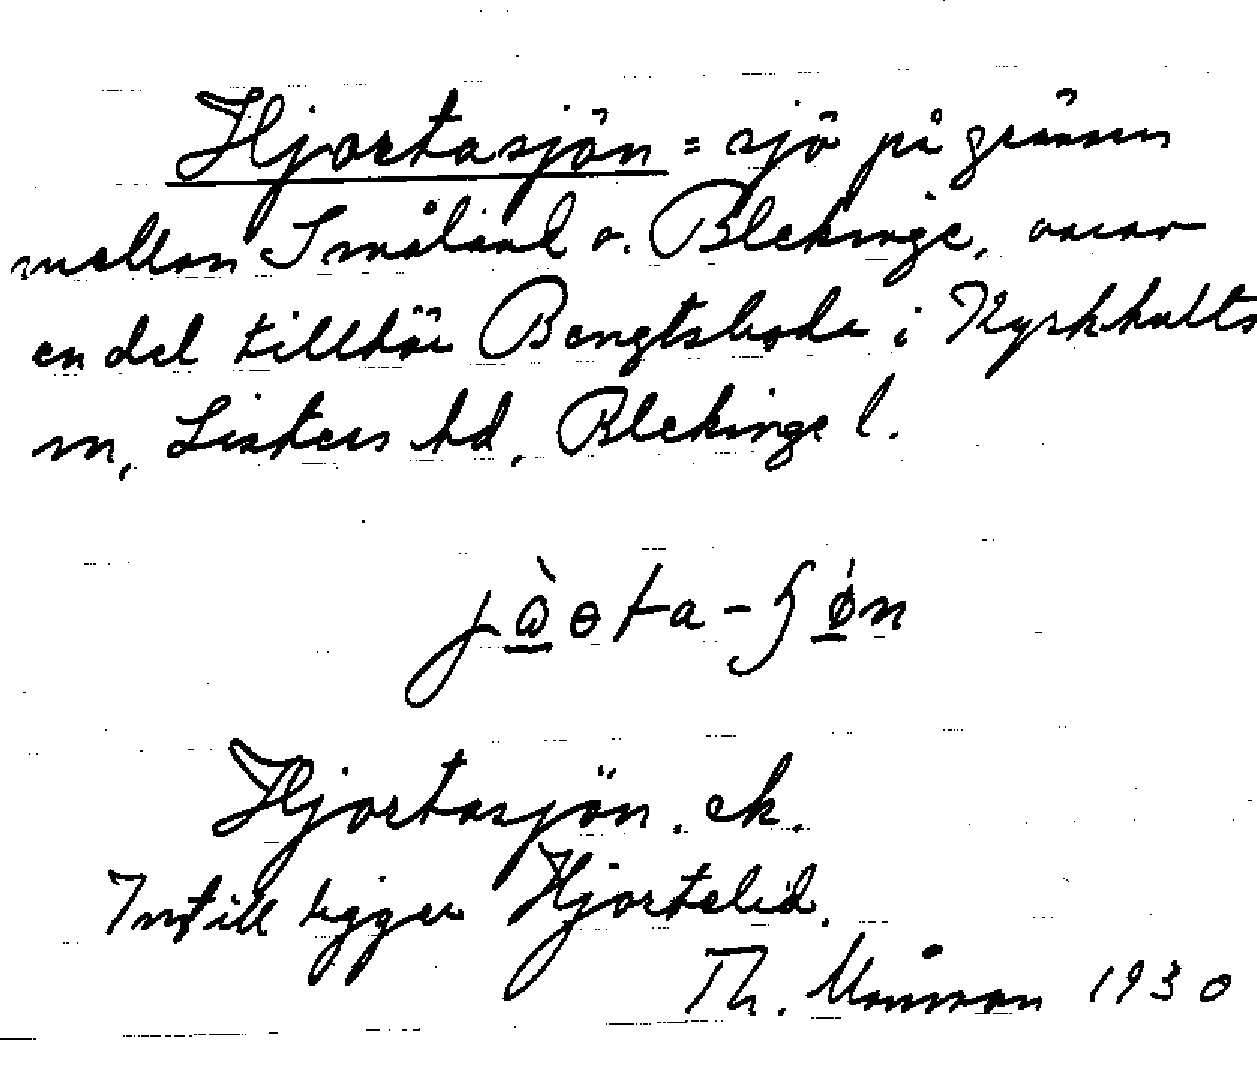 Hjortasjön = sjö på gränsen
mellan Småland o. Blekinge, varav
en del tillhör Bengtsboda i Kyrkhults
sn, Listers hd, Blekinge l.
Hjortasjön. ek.
Intill ligger Hjortelid.
Th. Månsson 1930